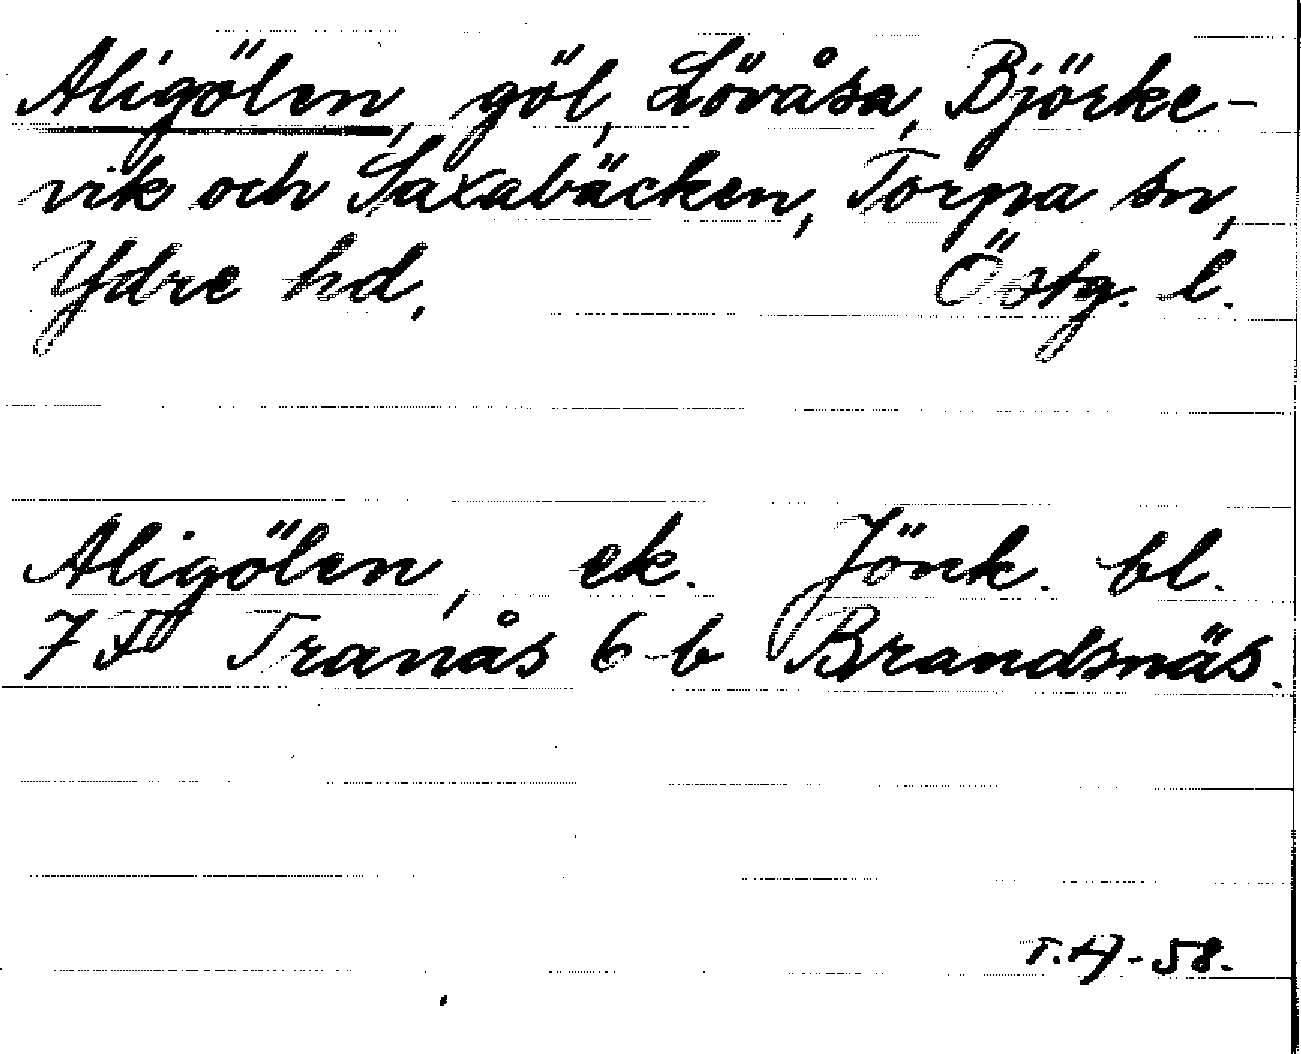 Aligölen, göl, Lövåsa, Björke-
vik och Saxabäcken, Torpa sn,
Ydre hd, Östg. l.
Aligölen, ek. Jönk. bl.
7 F Tranås 6 b Brandsnäs.
T.H-58.